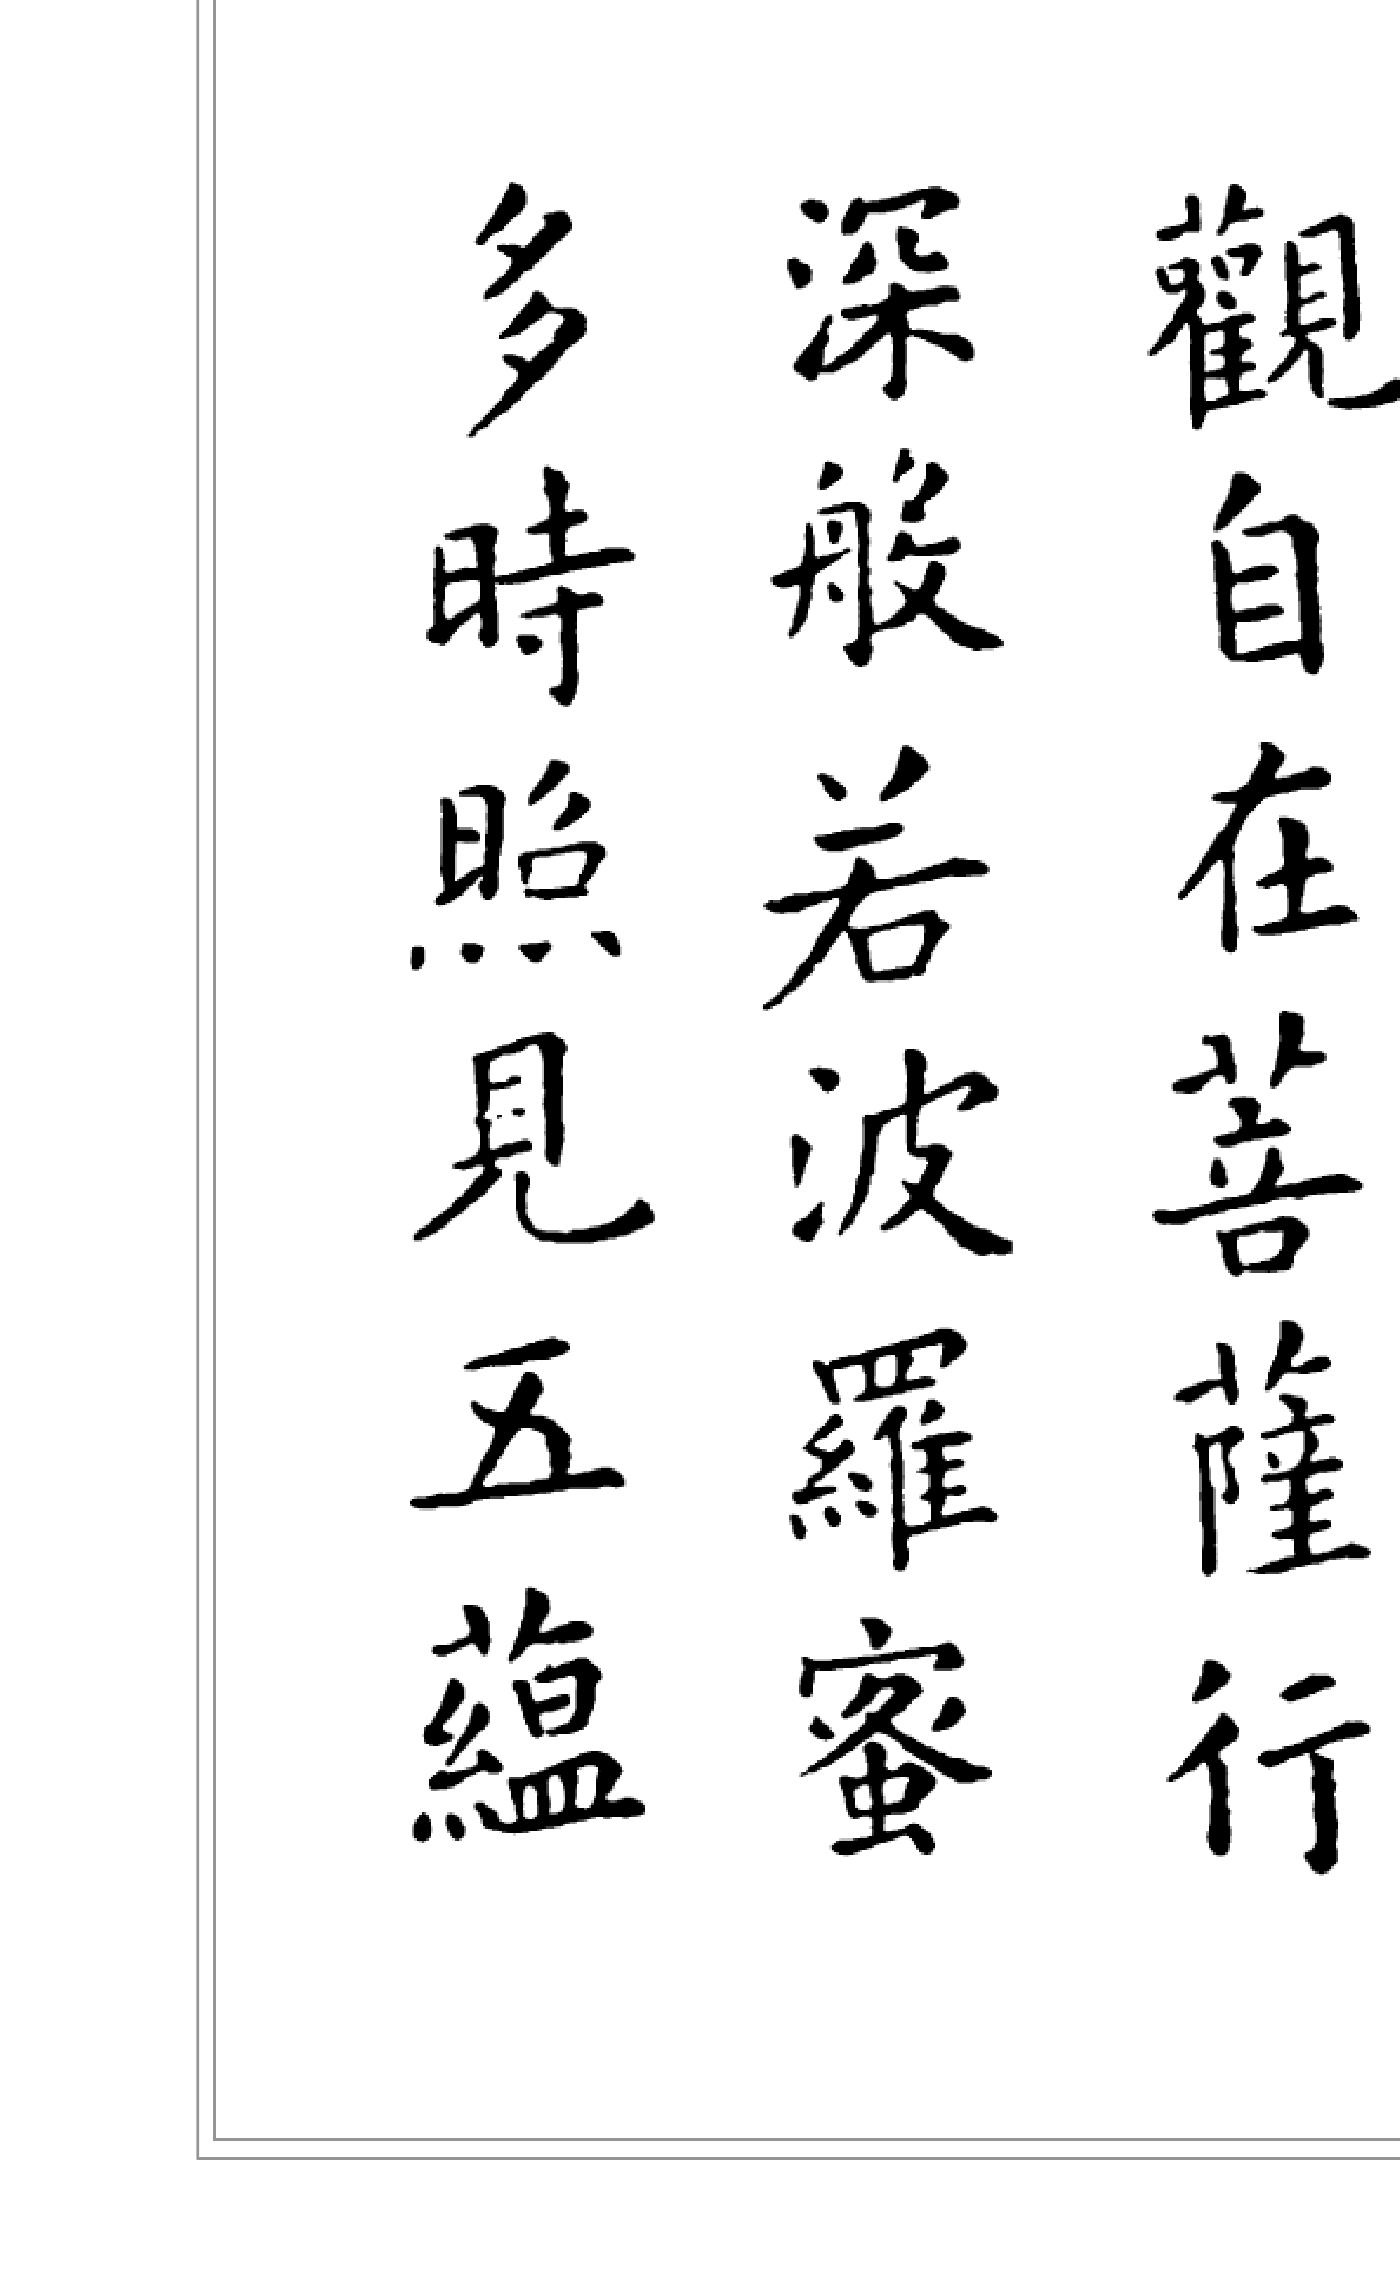 觀自在菩薩行
深般若波羅蜜
多時照見五蘊